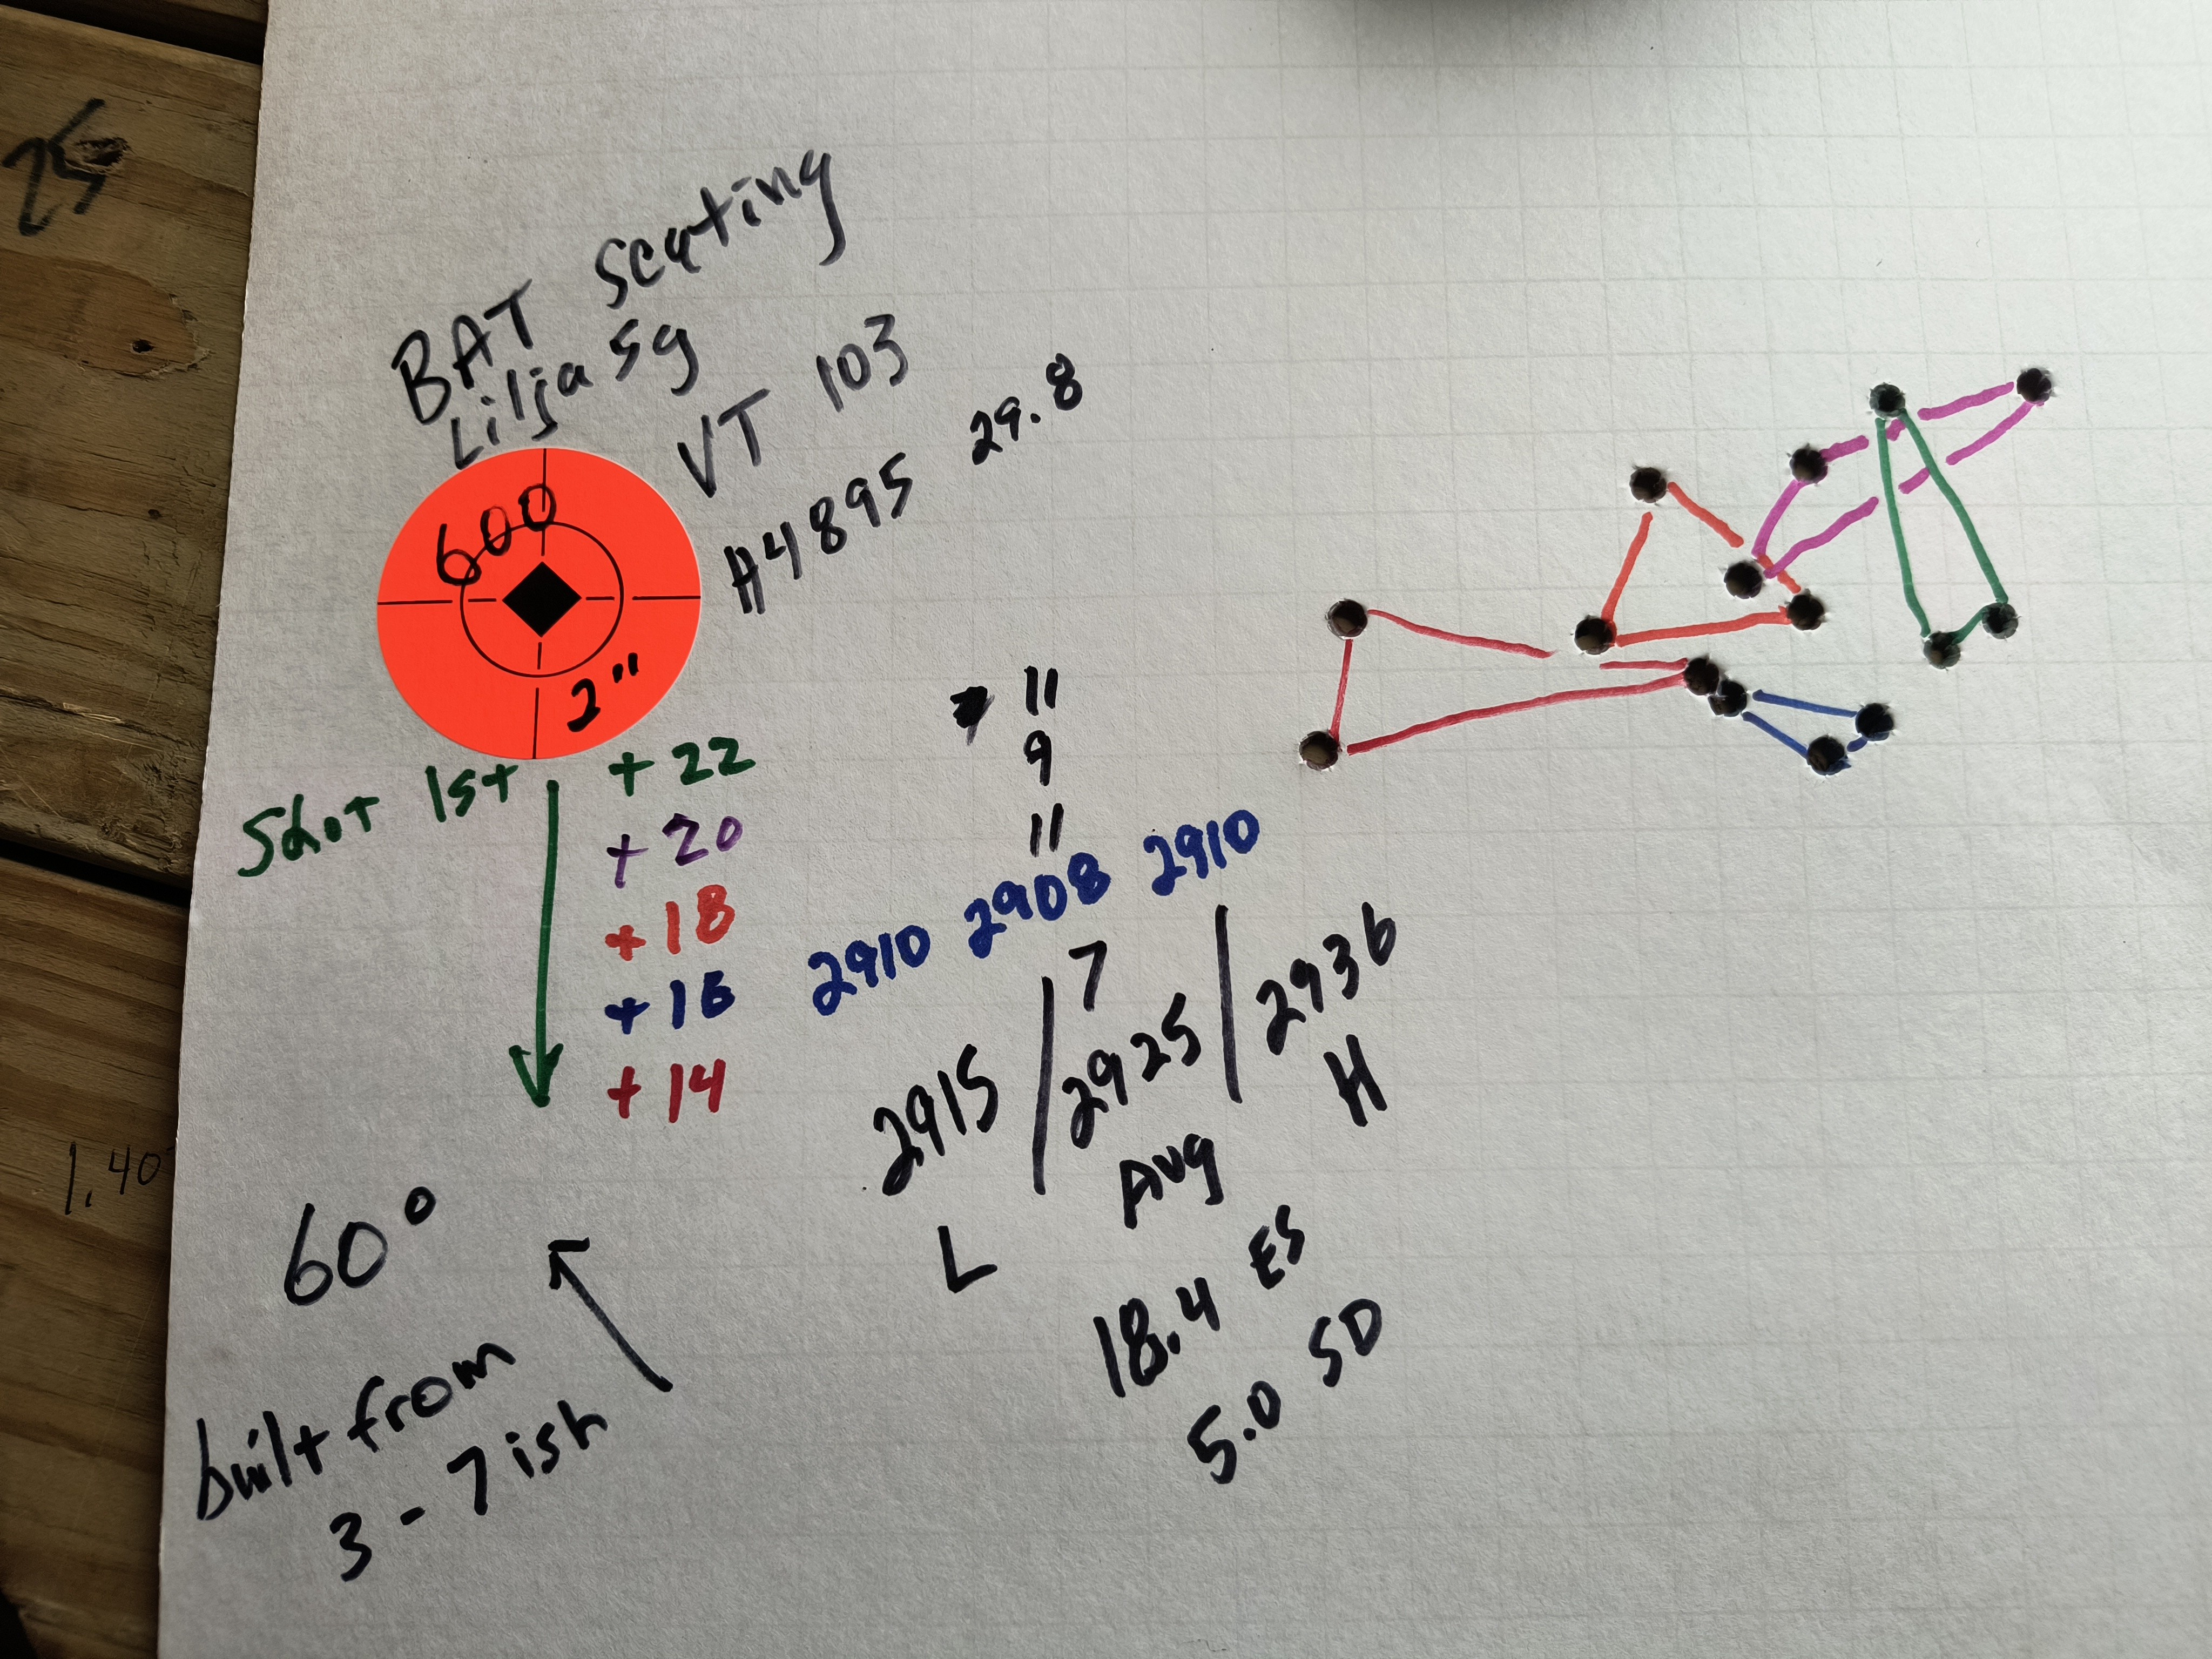 25
BAT Seating
Lilja 5g
VT 103
H4895 29.8
600
2"
Shot 1st
+ 22
+ 20
+ 18
+ 16
+ 14
11
9
11
2910 2908 2910
7
2915 / 2925 / 2936
L Avg H
18.4 ES
5.0 SD
1.40
60°
built from
3 - 7 ish